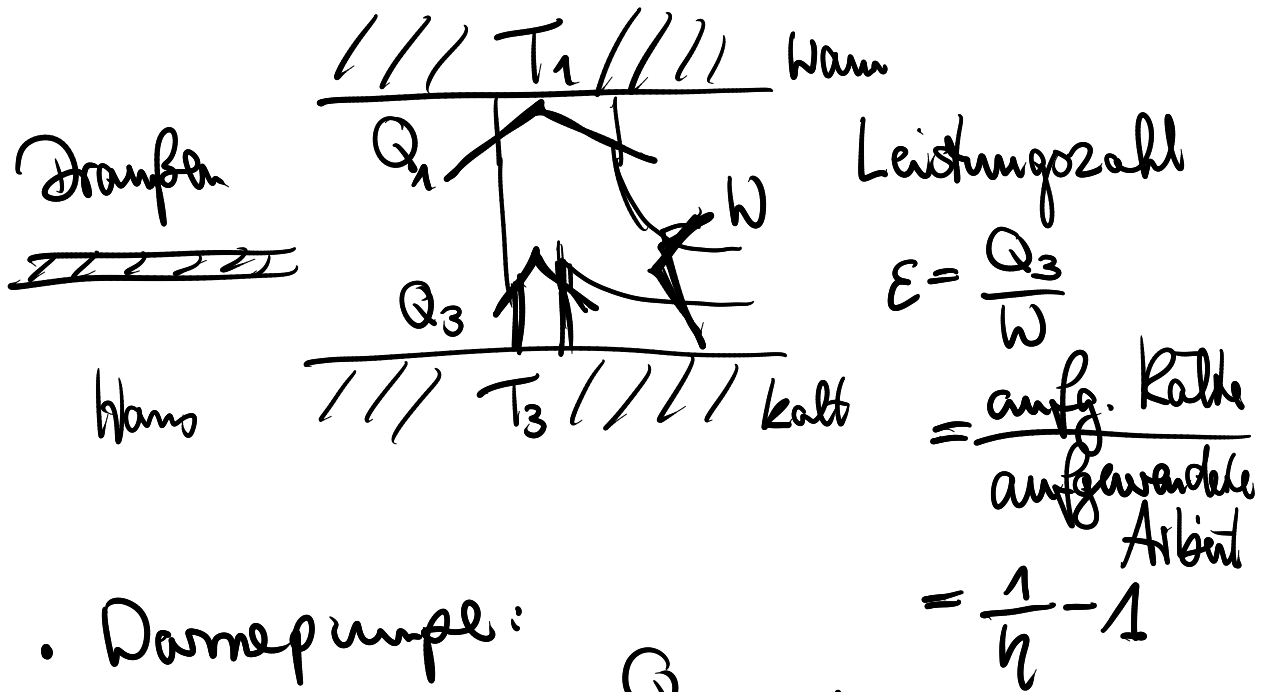 T₁ warm
Q₁
Draußen
W
Q₃
Haus
T₃ kalt
Leistungszahl
ε = Q₃ / W
= aufg. Kälte / aufgewendete Arbeit
= 1/η - 1
• Wärmepumpe:
Q